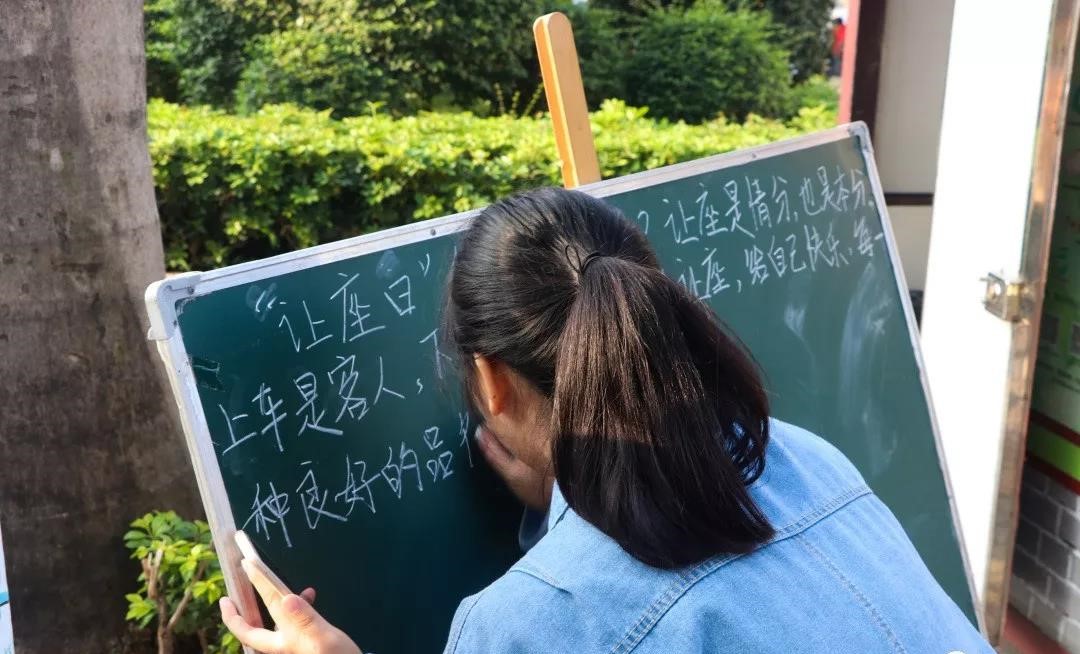 “让座日” ? 让座是情分,也是本分,
上车是客人,下 让座,给自己快乐,每一
种良好的品